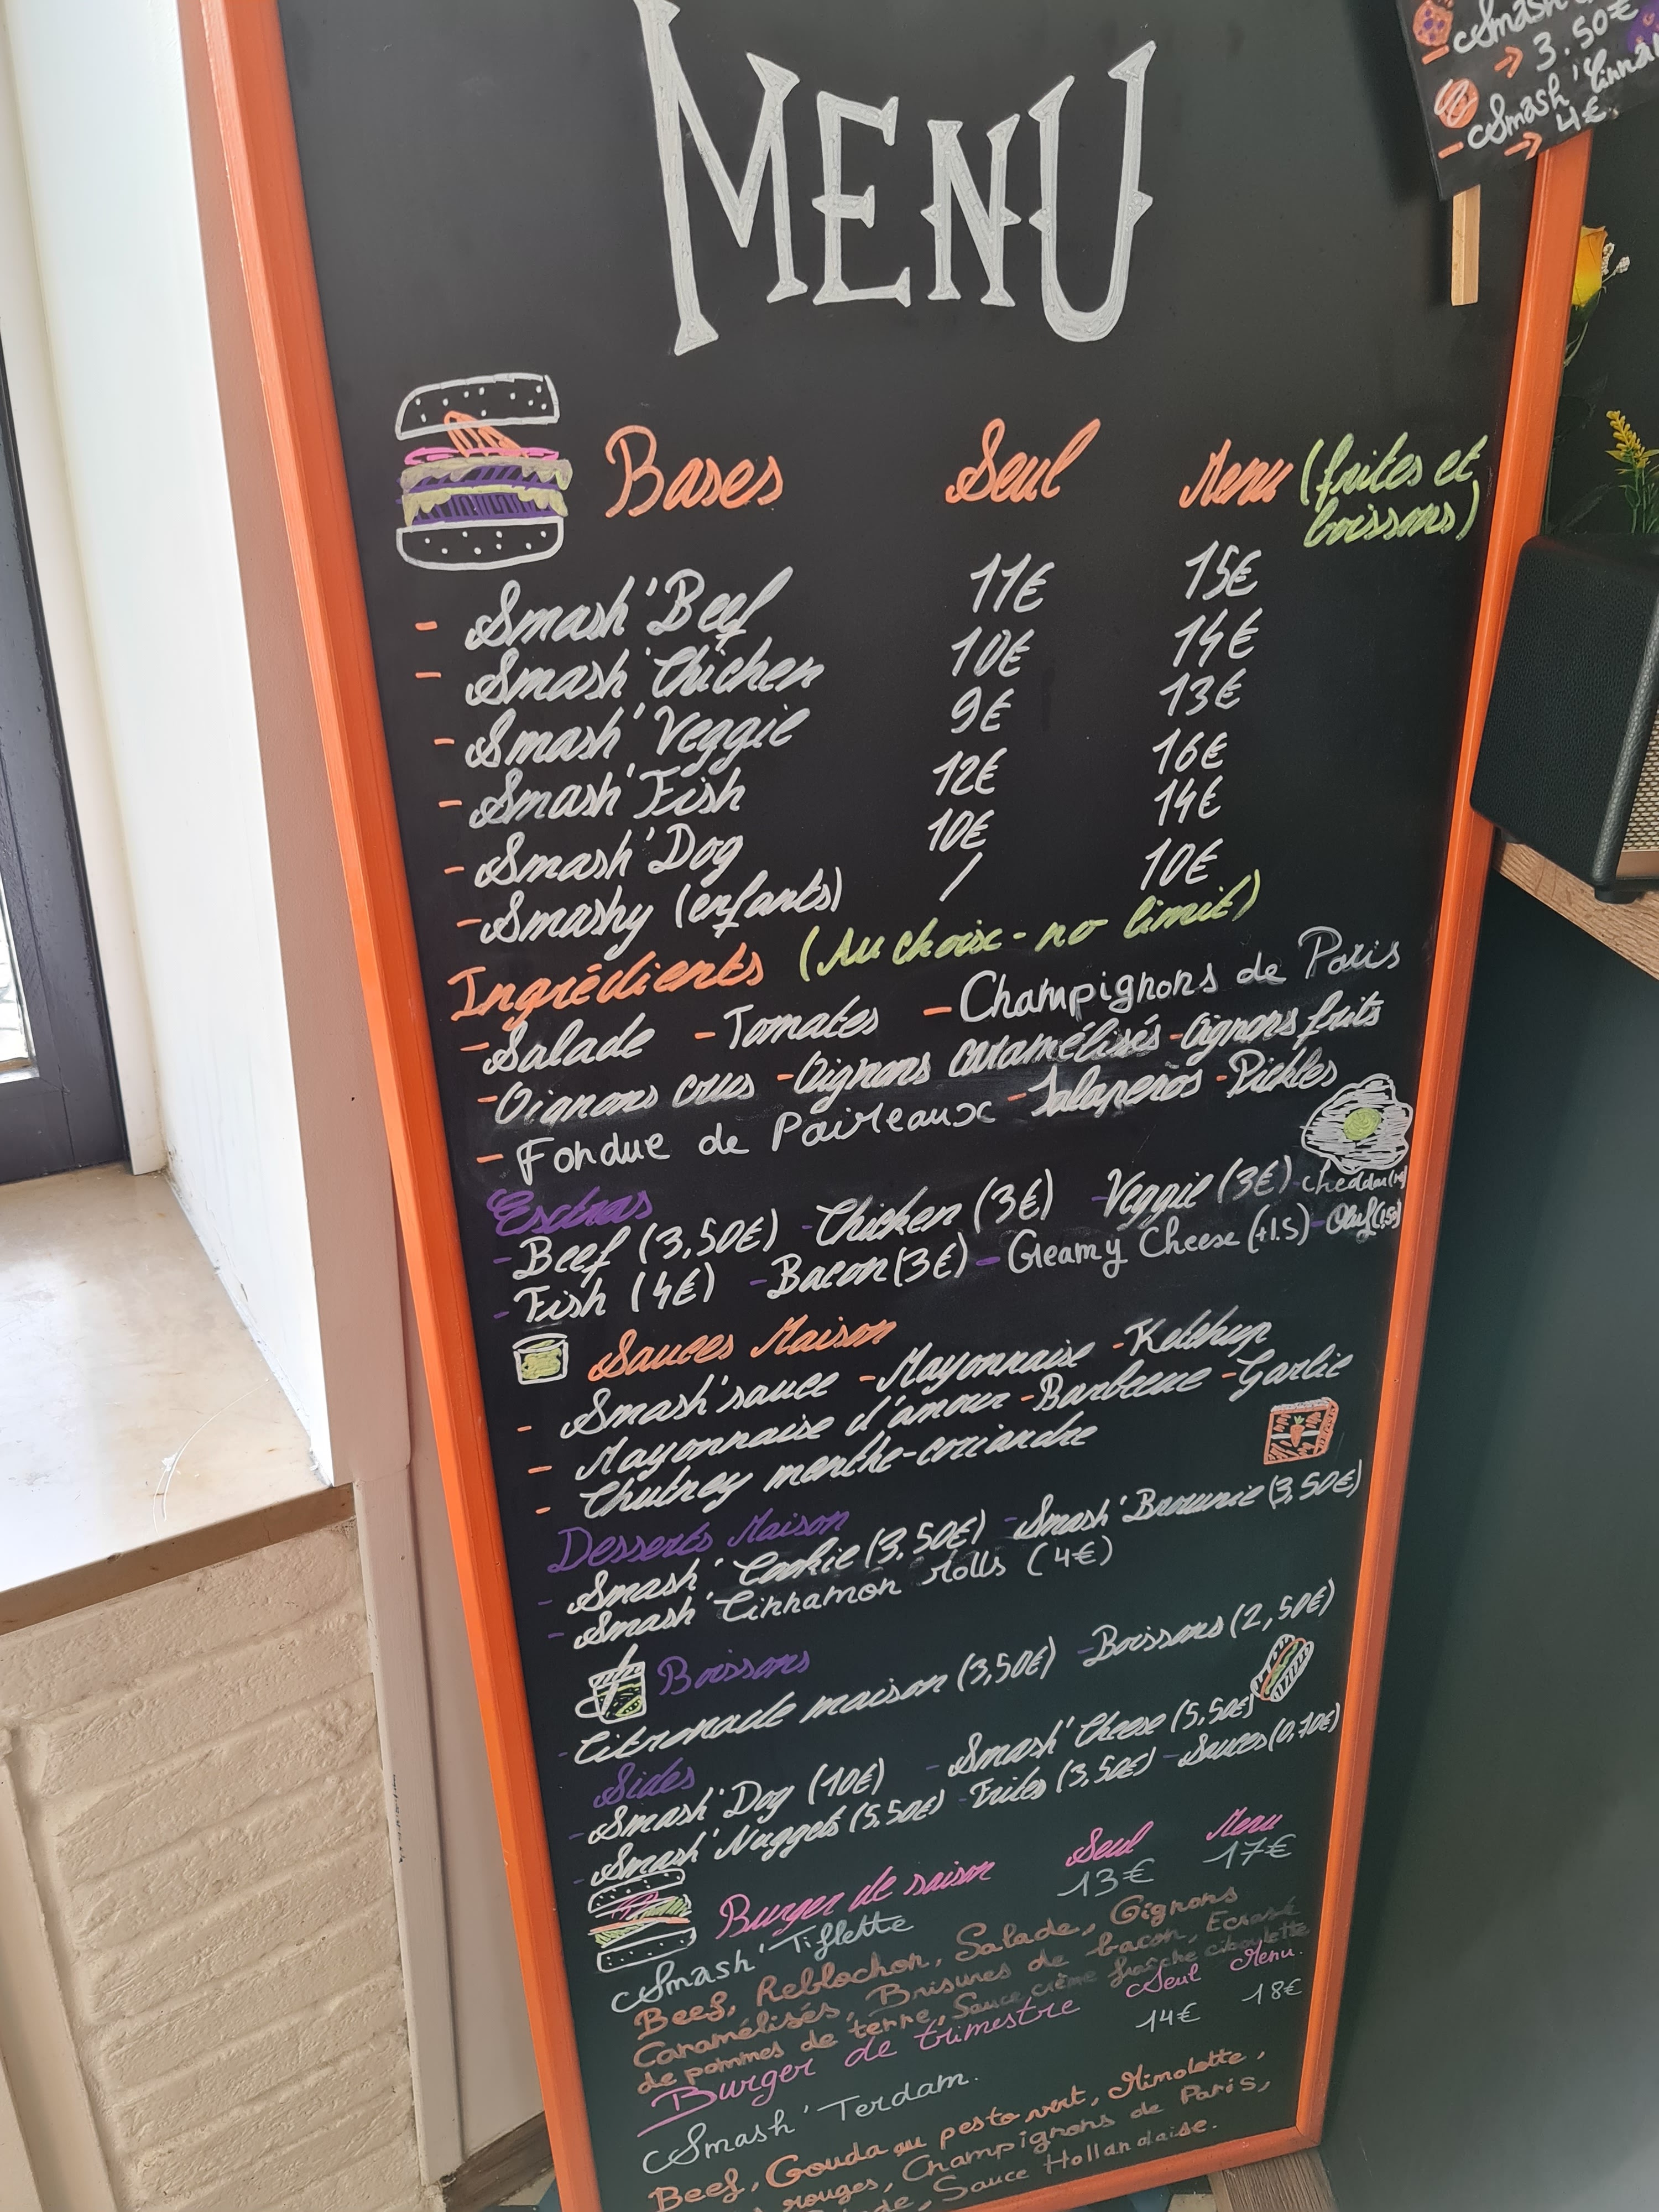 MENU
Bases Seul Menu (frites et
boissons)
- Smash'Beef 11€ 15€
- Smash'Chicken 10€ 14€
- Smash'Veggie 9€ 13€
- Smash'Fish 12€ 16€
- Smash'Dog 10€ 14€
- Smashy (enfants) / 10€
Ingrédients (Au choix - no limit)
- Salade - Tomates - Champignons de Paris
- Oignons crus - Oignons caramélisés - Oignons frits
- Fondue de Poireaux - Jalapeños - Pickles
Extras
- Beef (3,50€) - Chicken (3€) - Veggie (3€) cheddar
- Fish (4€) - Bacon (3€) - Creamy Cheese (+1.5) - Oeuf (1,50)
Sauces Maison
- Smash'sauce - Mayonnaise - Ketchup
- Mayonnaise d'amour - Barbecue - Garlic
- Chutney menthe-coriandre
Desserts Maison
- Smash' Cookie (3,50€) - Smash'Brownie (3,50€)
- Smash' Cinnamon rolls (4€)
Boissons
- Citronade maison (3,50€) - Boissons (2,50€)
Sides
- Smash'Dog (10€) - Smash'Cheese (5,50€)
- Smash'Nuggets (5,50€) - Frites (3,50€) - Sauces (0,70€)
Burger de saison Seul Menu
Smash'Tiflette 13€ 17€
Beef, Reblochon, Salade, Oignons
Caramélisés, Brisures de bacon, Ecrasé
de pommes de terre, Sauce crème fraîche ciboulette
Burger de trimestre Seul Menu.
Smash'Terdam. 14€ 18€
Beef, Gouda au pesto vert, Mimolette,
rouges, Champignons de Paris,
Sauce Hollandaise.
- Smash
→ 3.50€
- Smash'
→ 4€.